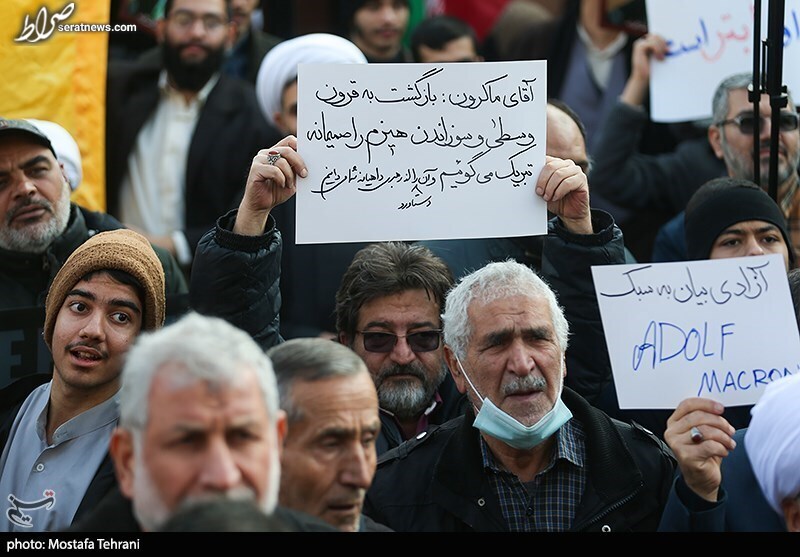 صراط
seratnews.com
آقای ماکرون: بازگشت به قرون
وسطی و سوزاندن هیزم را صمیمانه
تبریک می گوئیم و آن را از رهبری داهیانه شما می دانیم
دستاورد
ابتر است
آزادی بیان به سبک
ADOLF
MACRON
تسنیم
photo: Mostafa Tehrani